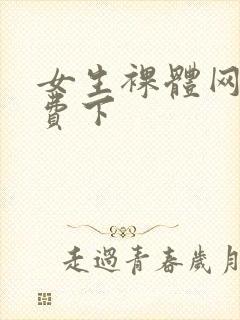 女生裸體网
費下
走過青春歲月